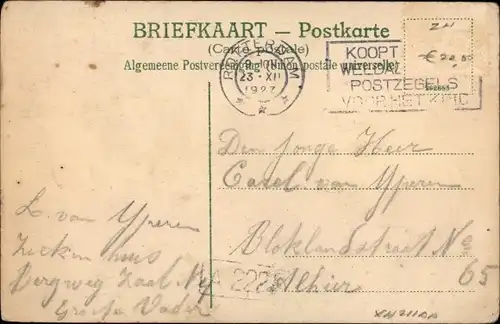 BRIEFKAART — Postkarte
(Carte Postale)
Algemeene Postvereeniging (Union postale universelle)
ROTTERDAM
23 XII
1927
KOOPT
WELDA
POSTZEGELS
VOOR HET KIND
ZN
€ 22,50
Den Jonge Heer
Carel van Yperen
Bloklandstraat No
65
Alhier
L. van Yperen
Ziekenhuis
Bergweg Zaal No 4
Groete Vader
222
XN211AA